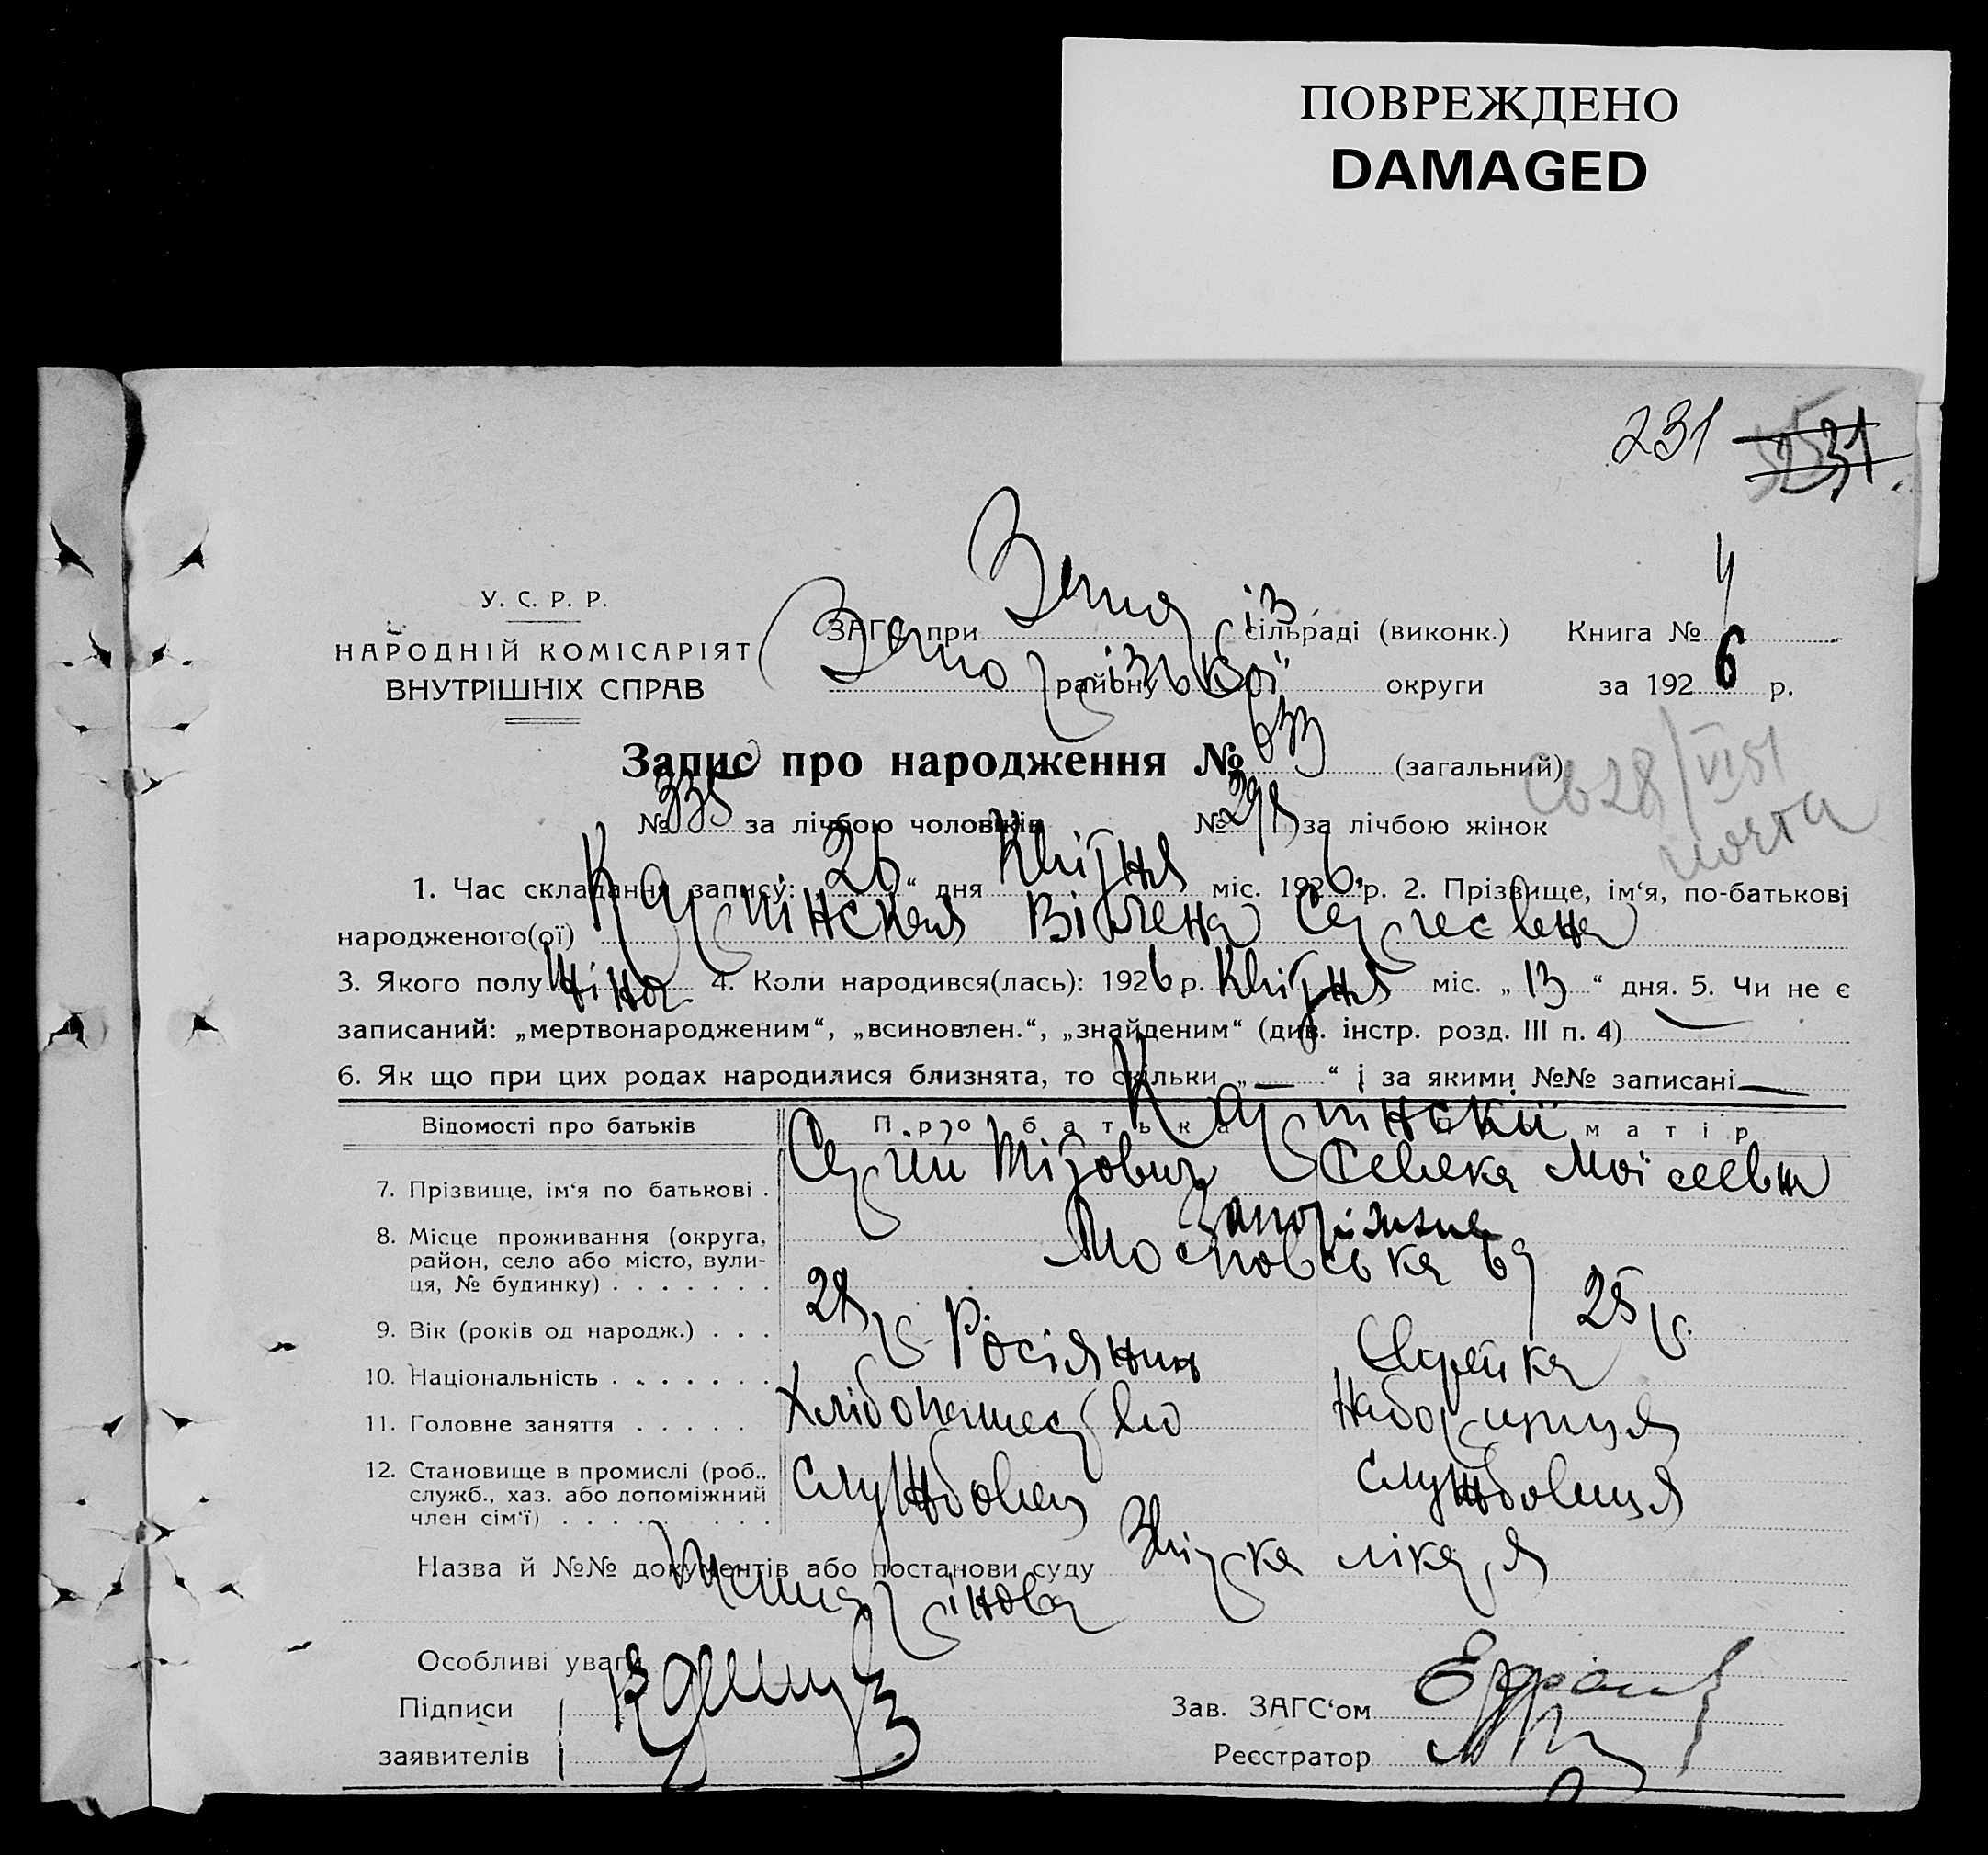 ПОВРЕЖДЕНО
DAMAGED
231 231
У. С. Р. Р.
НАРОДНІЙ КОМІСАРІЯТ
ВНУТРІШНІХ СПРАВ
ЗАГС при сільраді (виконк.) Книга № 4
району округи за 1926 р.
Запис про народження № 633 (загальний)
№ 335 за лічбою чоловіків № 298 за лічбою жінок
28/VI 51
почта
1. Час складання запису: „26“ дня Квітня міс. 1926 р. 2. Прізвище, ім‘я, по-батькові
народженого(ої) Карпінская Вілена Сергеевна
3. Якого полу жіноч. 4. Коли народився(лась): 1926 р. Квітня міс. „13“ дня. 5. Чи не є
записаний: „мертвонародженим“, „всиновлен.“, „знайденим“ (див. інстр. розд. III п. 4) —
6. Як що при цих родах народилися близнята, то скільки „—“ і за якими №№ записані —
Відомості про батьків Про батька Про матір
Карпінскії
7. Прізвище, ім‘я по батькові . Сергій Тітович Севека Моісеевна
8. Місце проживання (округа, район, село або місто, вулиця, № будинку) . . . . . . . Запоріжжя
Московська 69
9. Вік (років од народж.) . . . 28 р. 25 р.
10. Національність . . . . . . . Росіянин Єврейка
11. Головне заняття . . . . . Хлібопашество Наборщиця
12. Становище в промислі (роб., служб., хаз. або допоміжний член сім‘ї) . . . . . . . . . Службовец Службовиця
Назва й №№ документів або постанови суду Звістка лікаря
Особливі уваги
Підписи
заявителів
Зав. ЗАГС‘ом
Реєстратор